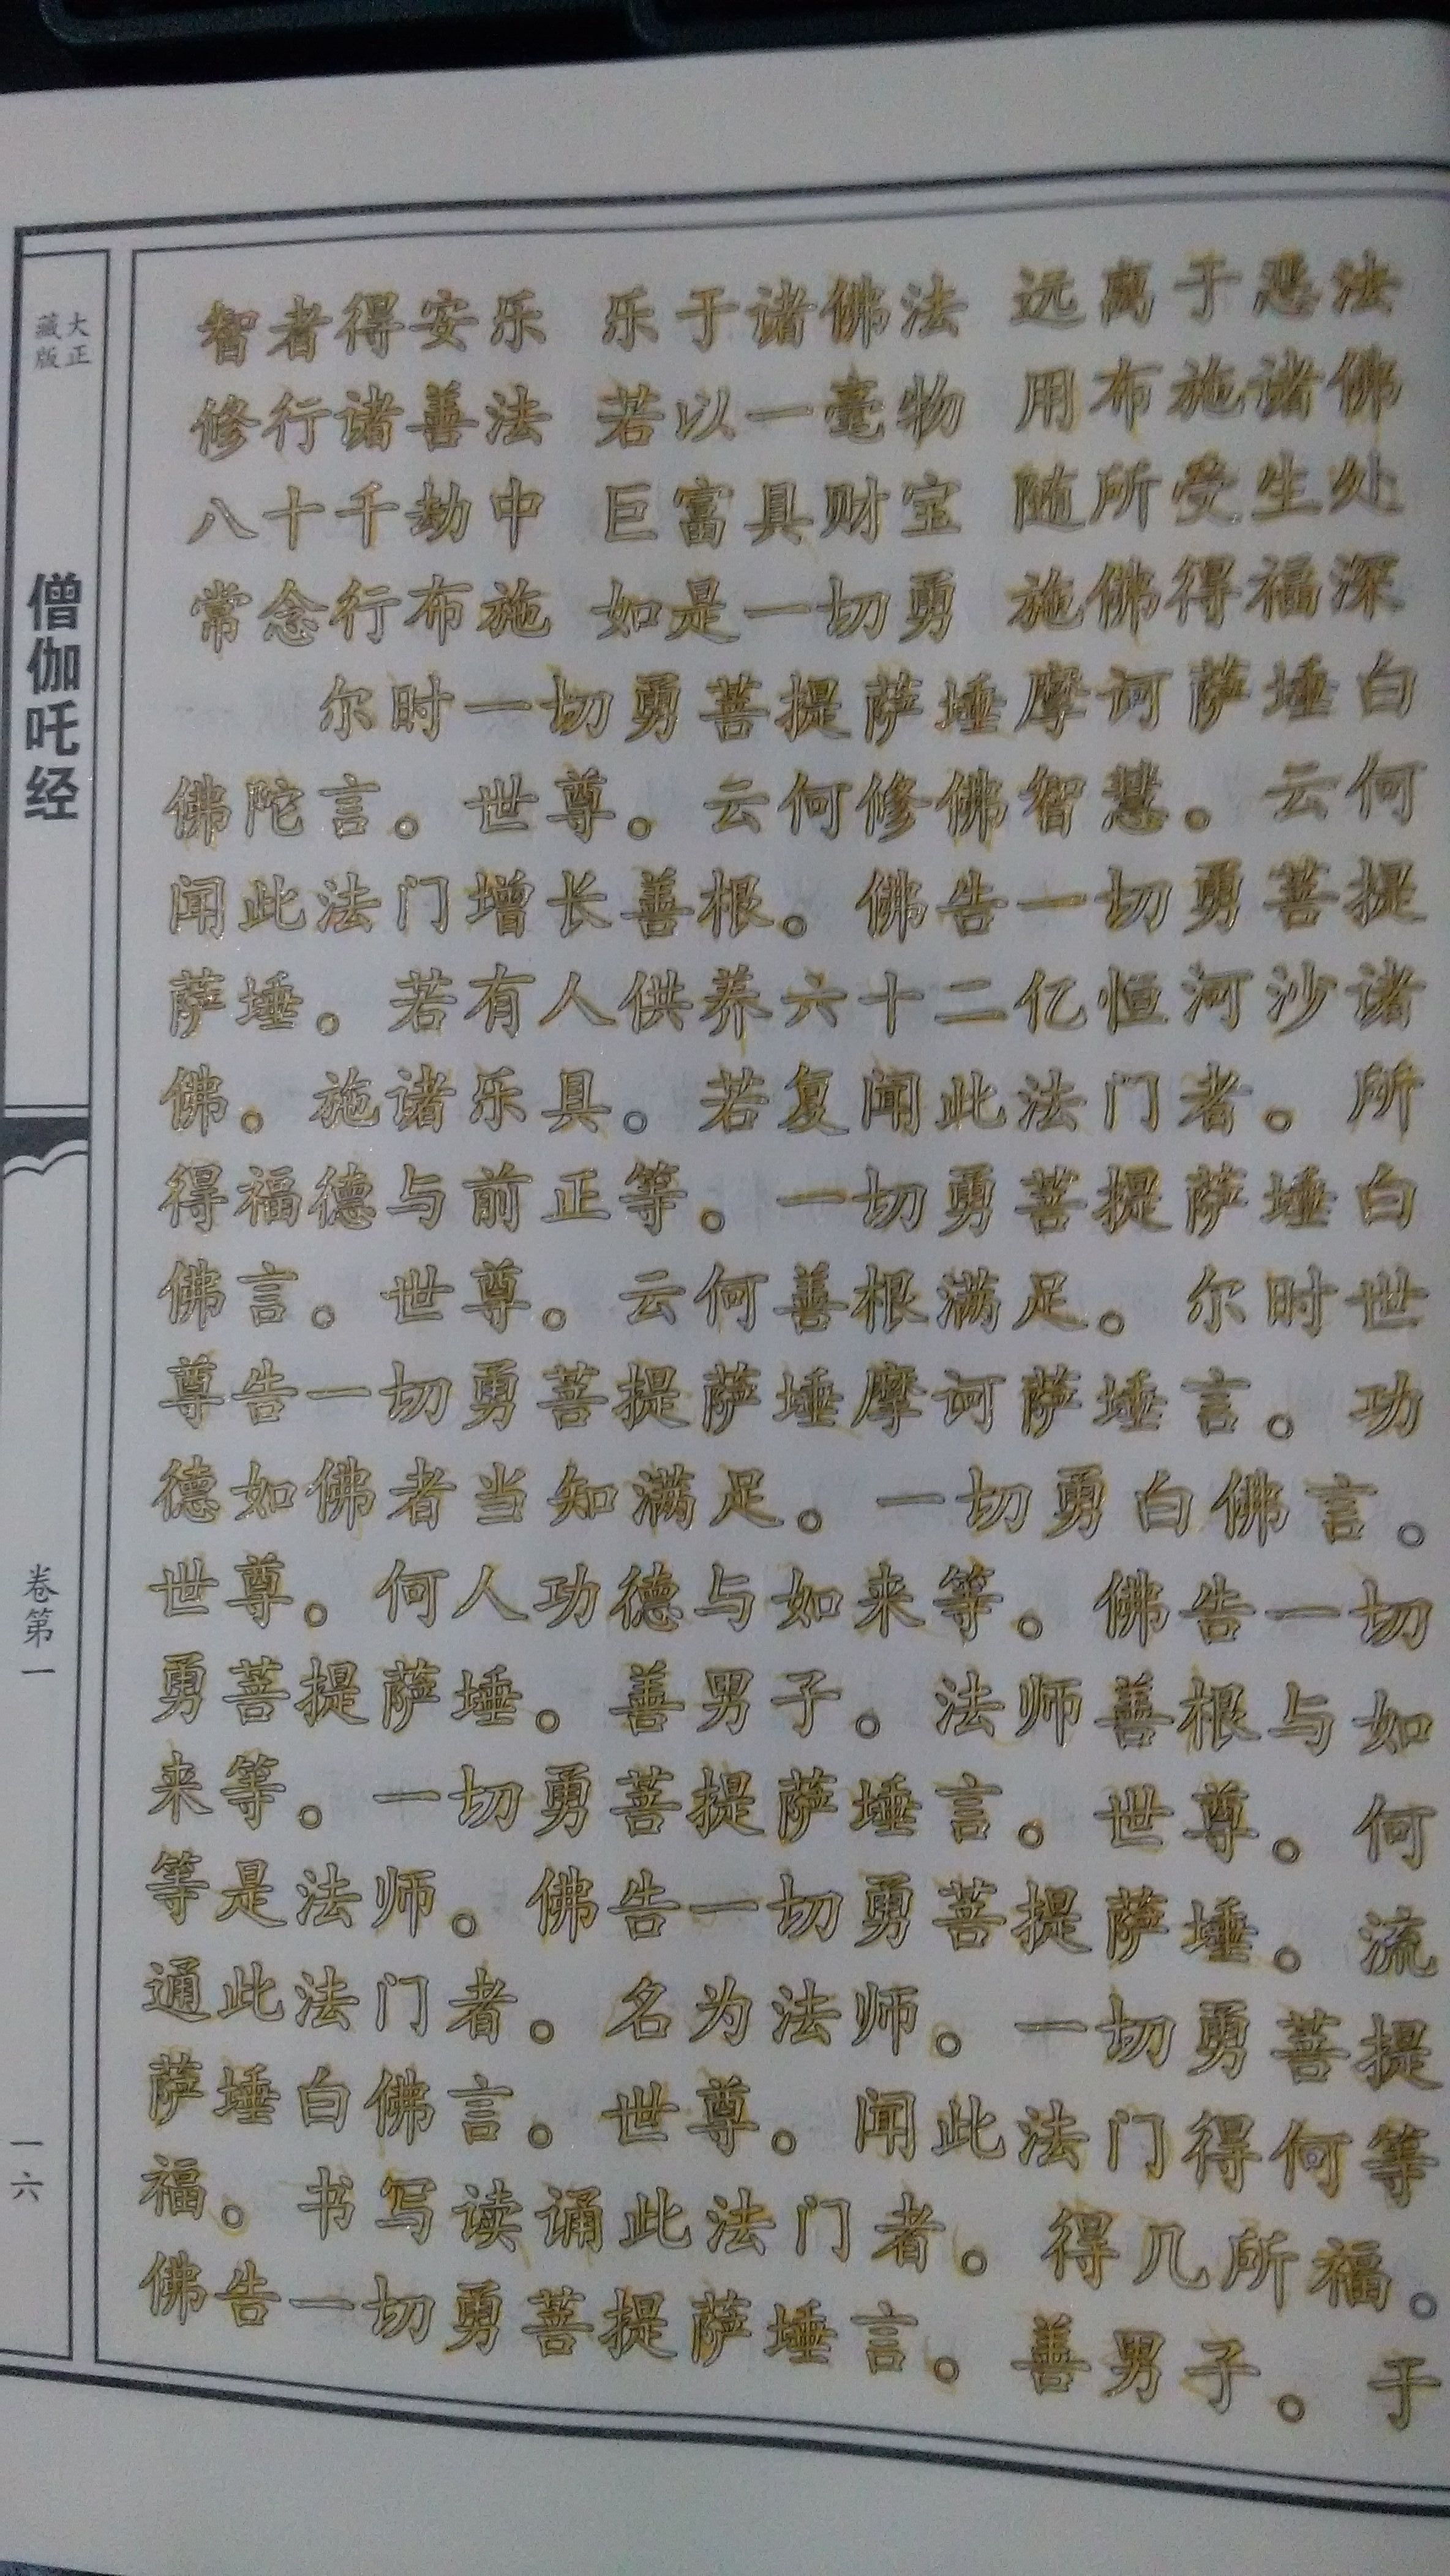 智者得安乐 乐于诸佛法 远离于恶法
修行诸善法 若以一毫物 用布施诸佛
八十千劫中 巨富具财宝 随所受生处
常念行布施 如是一切勇 施佛得福深
尔时一切勇菩提萨埵摩诃萨埵白
佛陀言。世尊。云何修佛智慧。云何
闻此法门增长善根。佛告一切勇菩提
萨埵。若有人供养六十二亿恒河沙诸
佛。施诸乐具。若复闻此法门者。所
得福德与前正等。一切勇菩提萨埵白
佛言。世尊。云何善根满足。尔时世
尊告一切勇菩提萨埵摩诃萨埵言。功
德如佛者当知满足。一切勇白佛言。
世尊。何人功德与如来等。佛告一切
勇菩提萨埵。善男子。法师善根与如
来等。一切勇菩提萨埵言。世尊。何
等是法师。佛告一切勇菩提萨埵。流
通此法门者。名为法师。一切勇菩提
萨埵白佛言。世尊。闻此法门得何等
福。书写读诵此法门者。得几所福。
佛告一切勇菩提萨埵言。善男子。于
大正
藏版
僧伽吒经
卷第一
一六